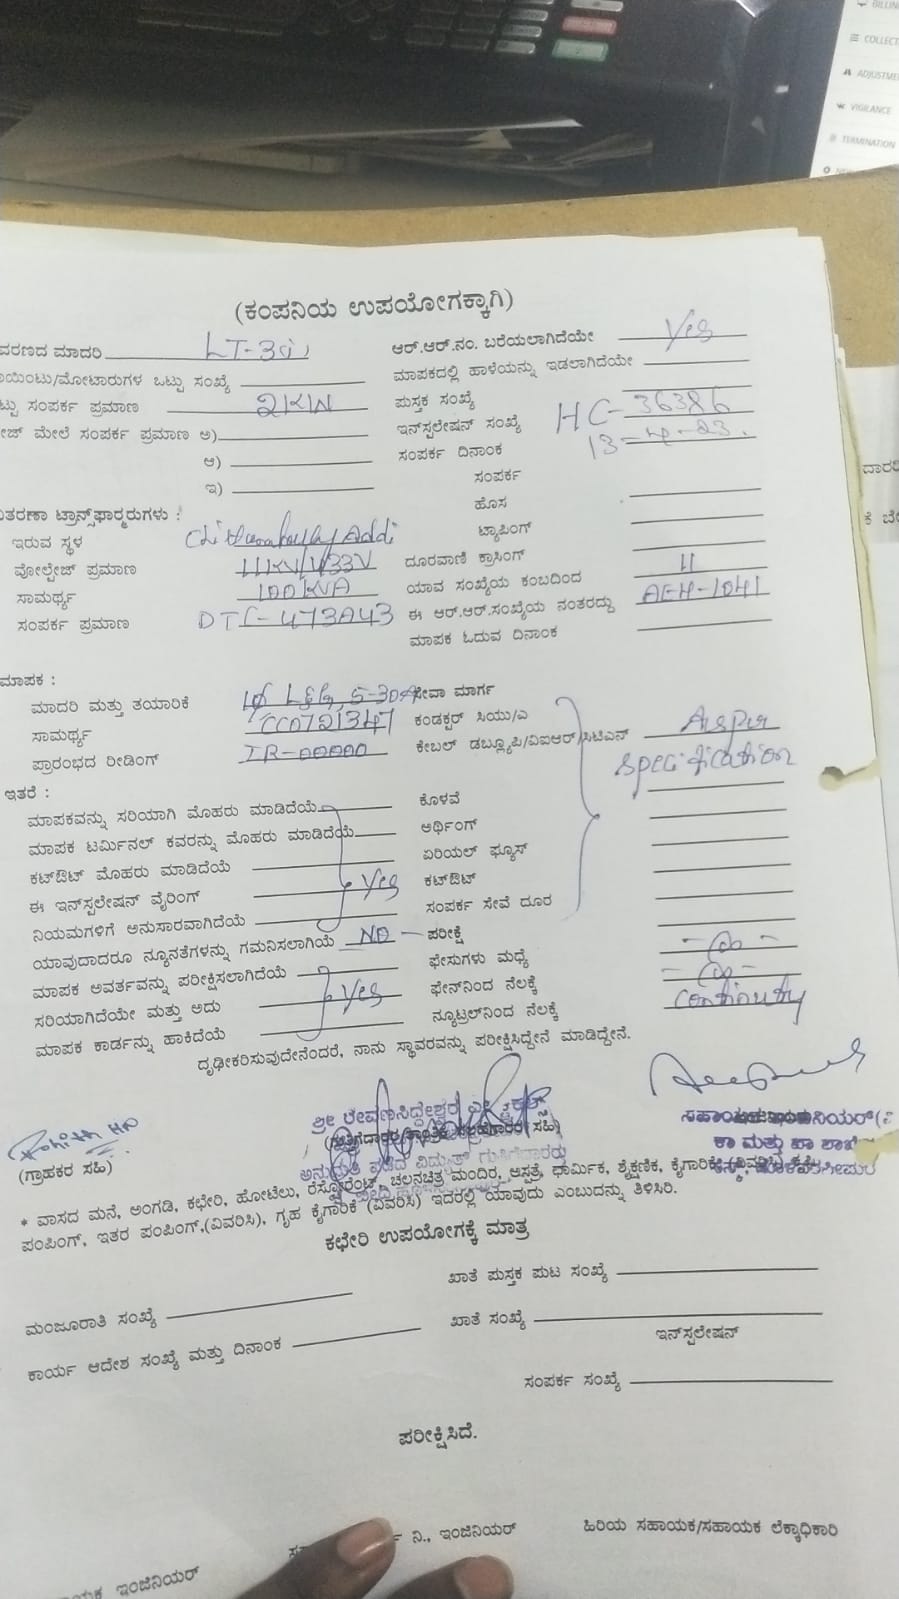 BILLIN
COLLECT
ADJUSTME
VIGILANCE
TERMINATION
(ಕಂಪನಿಯ ಉಪಯೋಗಕ್ಕಾಗಿ)
ವರಣದ ಮಾದರಿ LT-3(i) ಆರ್.ಆರ್.ನಂ. ಬರೆಯಲಾಗಿದೆಯೇ Yes
ಾಯಿಂಟು/ಮೋಟಾರುಗಳ ಒಟ್ಟು ಸಂಖ್ಯೆ ಮಾಪಕದಲ್ಲಿ ಹಾಳೆಯನ್ನು ಇಡಲಾಗಿದೆಯೇ
ಟ್ಟು ಸಂಪರ್ಕ ಪ್ರಮಾಣ 2KW ಪುಸ್ತಕ ಸಂಖ್ಯೆ
ೇಜ್ ಮೇಲೆ ಸಂಪರ್ಕ ಪ್ರಮಾಣ ಅ) ಇನ್‌ಸ್ಪಲೇಷನ್ ಸಂಖ್ಯೆ HC-36386
ಆ) ಸಂಪರ್ಕ ದಿನಾಂಕ 13-4-23.
ಇ) ಸಂಪರ್ಕ
ಹೊಸ
ಿತರಣಾ ಟ್ರಾನ್ಸ್‌ಫಾರ್ಮರುಗಳು : ಟ್ಯಾಪಿಂಗ್
ಇರುವ ಸ್ಥಳ
ವೋಲ್ಟೇಜ್ ಪ್ರಮಾಣ 11KV/433V ದೂರವಾಣಿ ಕ್ರಾಸಿಂಗ್
ಸಾಮರ್ಥ್ಯ 100KVA ಯಾವ ಸಂಖ್ಯೆಯ ಕಂಬದಿಂದ 11
ಸಂಪರ್ಕ ಪ್ರಮಾಣ DTC-473A43 ಈ ಆರ್.ಆರ್.ಸಂಖ್ಯೆಯ ನಂತರದ್ದು AEH-1041
ಮಾಪಕ ಓದುವ ದಿನಾಂಕ
ಮಾಪಕ :
ಮಾದರಿ ಮತ್ತು ತಯಾರಿಕೆ 1ϕ L&G, 5-30A ಸೇವಾ ಮಾರ್ಗ
ಸಾಮರ್ಥ್ಯ CC0721347 ಕಂಡಕ್ಟರ್ ಸಿಯು/ಎ
ಪ್ರಾರಂಭದ ರೀಡಿಂಗ್ IR-00000 ಕೇಬಲ್ ಡಬ್ಲ್ಯೂಪಿ/ವಿಐಆರ್/ಸಿಟಿಎಸ್ As per
specification
ಇತರೆ :
ಮಾಪಕವನ್ನು ಸರಿಯಾಗಿ ಮೊಹರು ಮಾಡಿದೆಯೆ ಕೊಳವೆ
ಮಾಪಕ ಟರ್ಮಿನಲ್ ಕವರನ್ನು ಮೊಹರು ಮಾಡಿದೆಯೆ ಅರ್ಥಿಂಗ್
ಕಟ್‌ಔಟ್ ಮೊಹರು ಮಾಡಿದೆಯೆ ಏರಿಯಲ್ ಫ್ಯೂಸ್
ಈ ಇನ್‌ಸ್ಪಲೇಷನ್ ವೈರಿಂಗ್ Yes ಕಟ್‌ಔಟ್
ನಿಯಮಗಳಿಗೆ ಅನುಸಾರವಾಗಿದೆಯೆ ಸಂಪರ್ಕ ಸೇವೆ ದೂರ
ಯಾವುದಾದರೂ ನ್ಯೂನತೆಗಳನ್ನು ಗಮನಿಸಲಾಗಿಯೆ NO ಪರೀಕ್ಷೆ
ಮಾಪಕ ಅವರ್ತವನ್ನು ಪರೀಕ್ಷಿಸಲಾಗಿದೆಯೆ ಫೇಸುಗಳು ಮಧ್ಯೆ
ಸರಿಯಾಗಿದೆಯೇ ಮತ್ತು ಅದು Yes ಫೇಸ್‌ನಿಂದ ನೆಲಕ್ಕೆ
ಮಾಪಕ ಕಾರ್ಡನ್ನು ಹಾಕಿದೆಯೆ ನ್ಯೂಟ್ರಲ್‌ನಿಂದ ನೆಲಕ್ಕೆ continuty
ದೃಢೀಕರಿಸುವುದೇನೆಂದರೆ, ನಾನು ಸ್ಥಾವರವನ್ನು ಪರೀಕ್ಷಿಸಿದ್ದೇನೆ ಮಾಡಿದ್ದೇನೆ.
Rohith HP
(ಗ್ರಾಹಕರ ಸಹಿ)
* ವಾಸದ ಮನೆ, ಅಂಗಡಿ, ಕಛೇರಿ, ಹೋಟೆಲು, ರೆಸ್ಟೋರೆಂಟ್, ಚಲನಚಿತ್ರ ಮಂದಿರ, ಆಸ್ಪತ್ರೆ, ಧಾರ್ಮಿಕ, ಶೈಕ್ಷಣಿಕ, ಕೈಗಾರಿಕೆ (ವಿವರಿಸಿ)
ಪಂಪಿಂಗ್, ಇತರ ಪಂಪಿಂಗ್,(ವಿವರಿಸಿ), ಗೃಹ ಕೈಗಾರಿಕೆ (ವಿವರಿಸಿ) ಇದರಲ್ಲಿ ಯಾವುದು ಎಂಬುದನ್ನು ತಿಳಿಸಿರಿ.
ಕಛೇರಿ ಉಪಯೋಗಕ್ಕೆ ಮಾತ್ರ
ಖಾತೆ ಪುಸ್ತಕ ಪುಟ ಸಂಖ್ಯೆ
ಮಂಜೂರಾತಿ ಸಂಖ್ಯೆ ಖಾತೆ ಸಂಖ್ಯೆ
ಇನ್‌ಸ್ಪಲೇಷನ್
ಕಾರ್ಯ ಆದೇಶ ಸಂಖ್ಯೆ ಮತ್ತು ದಿನಾಂಕ
ಸಂಪರ್ಕ ಸಂಖ್ಯೆ
ಪರೀಕ್ಷಿಸಿದೆ.
ನಿ., ಇಂಜಿನಿಯರ್ ಹಿರಿಯ ಸಹಾಯಕ/ಸಹಾಯಕ ಲೆಕ್ಕಾಧಿಕಾರಿ
ಯಕ ಇಂಜಿನಿಯರ್